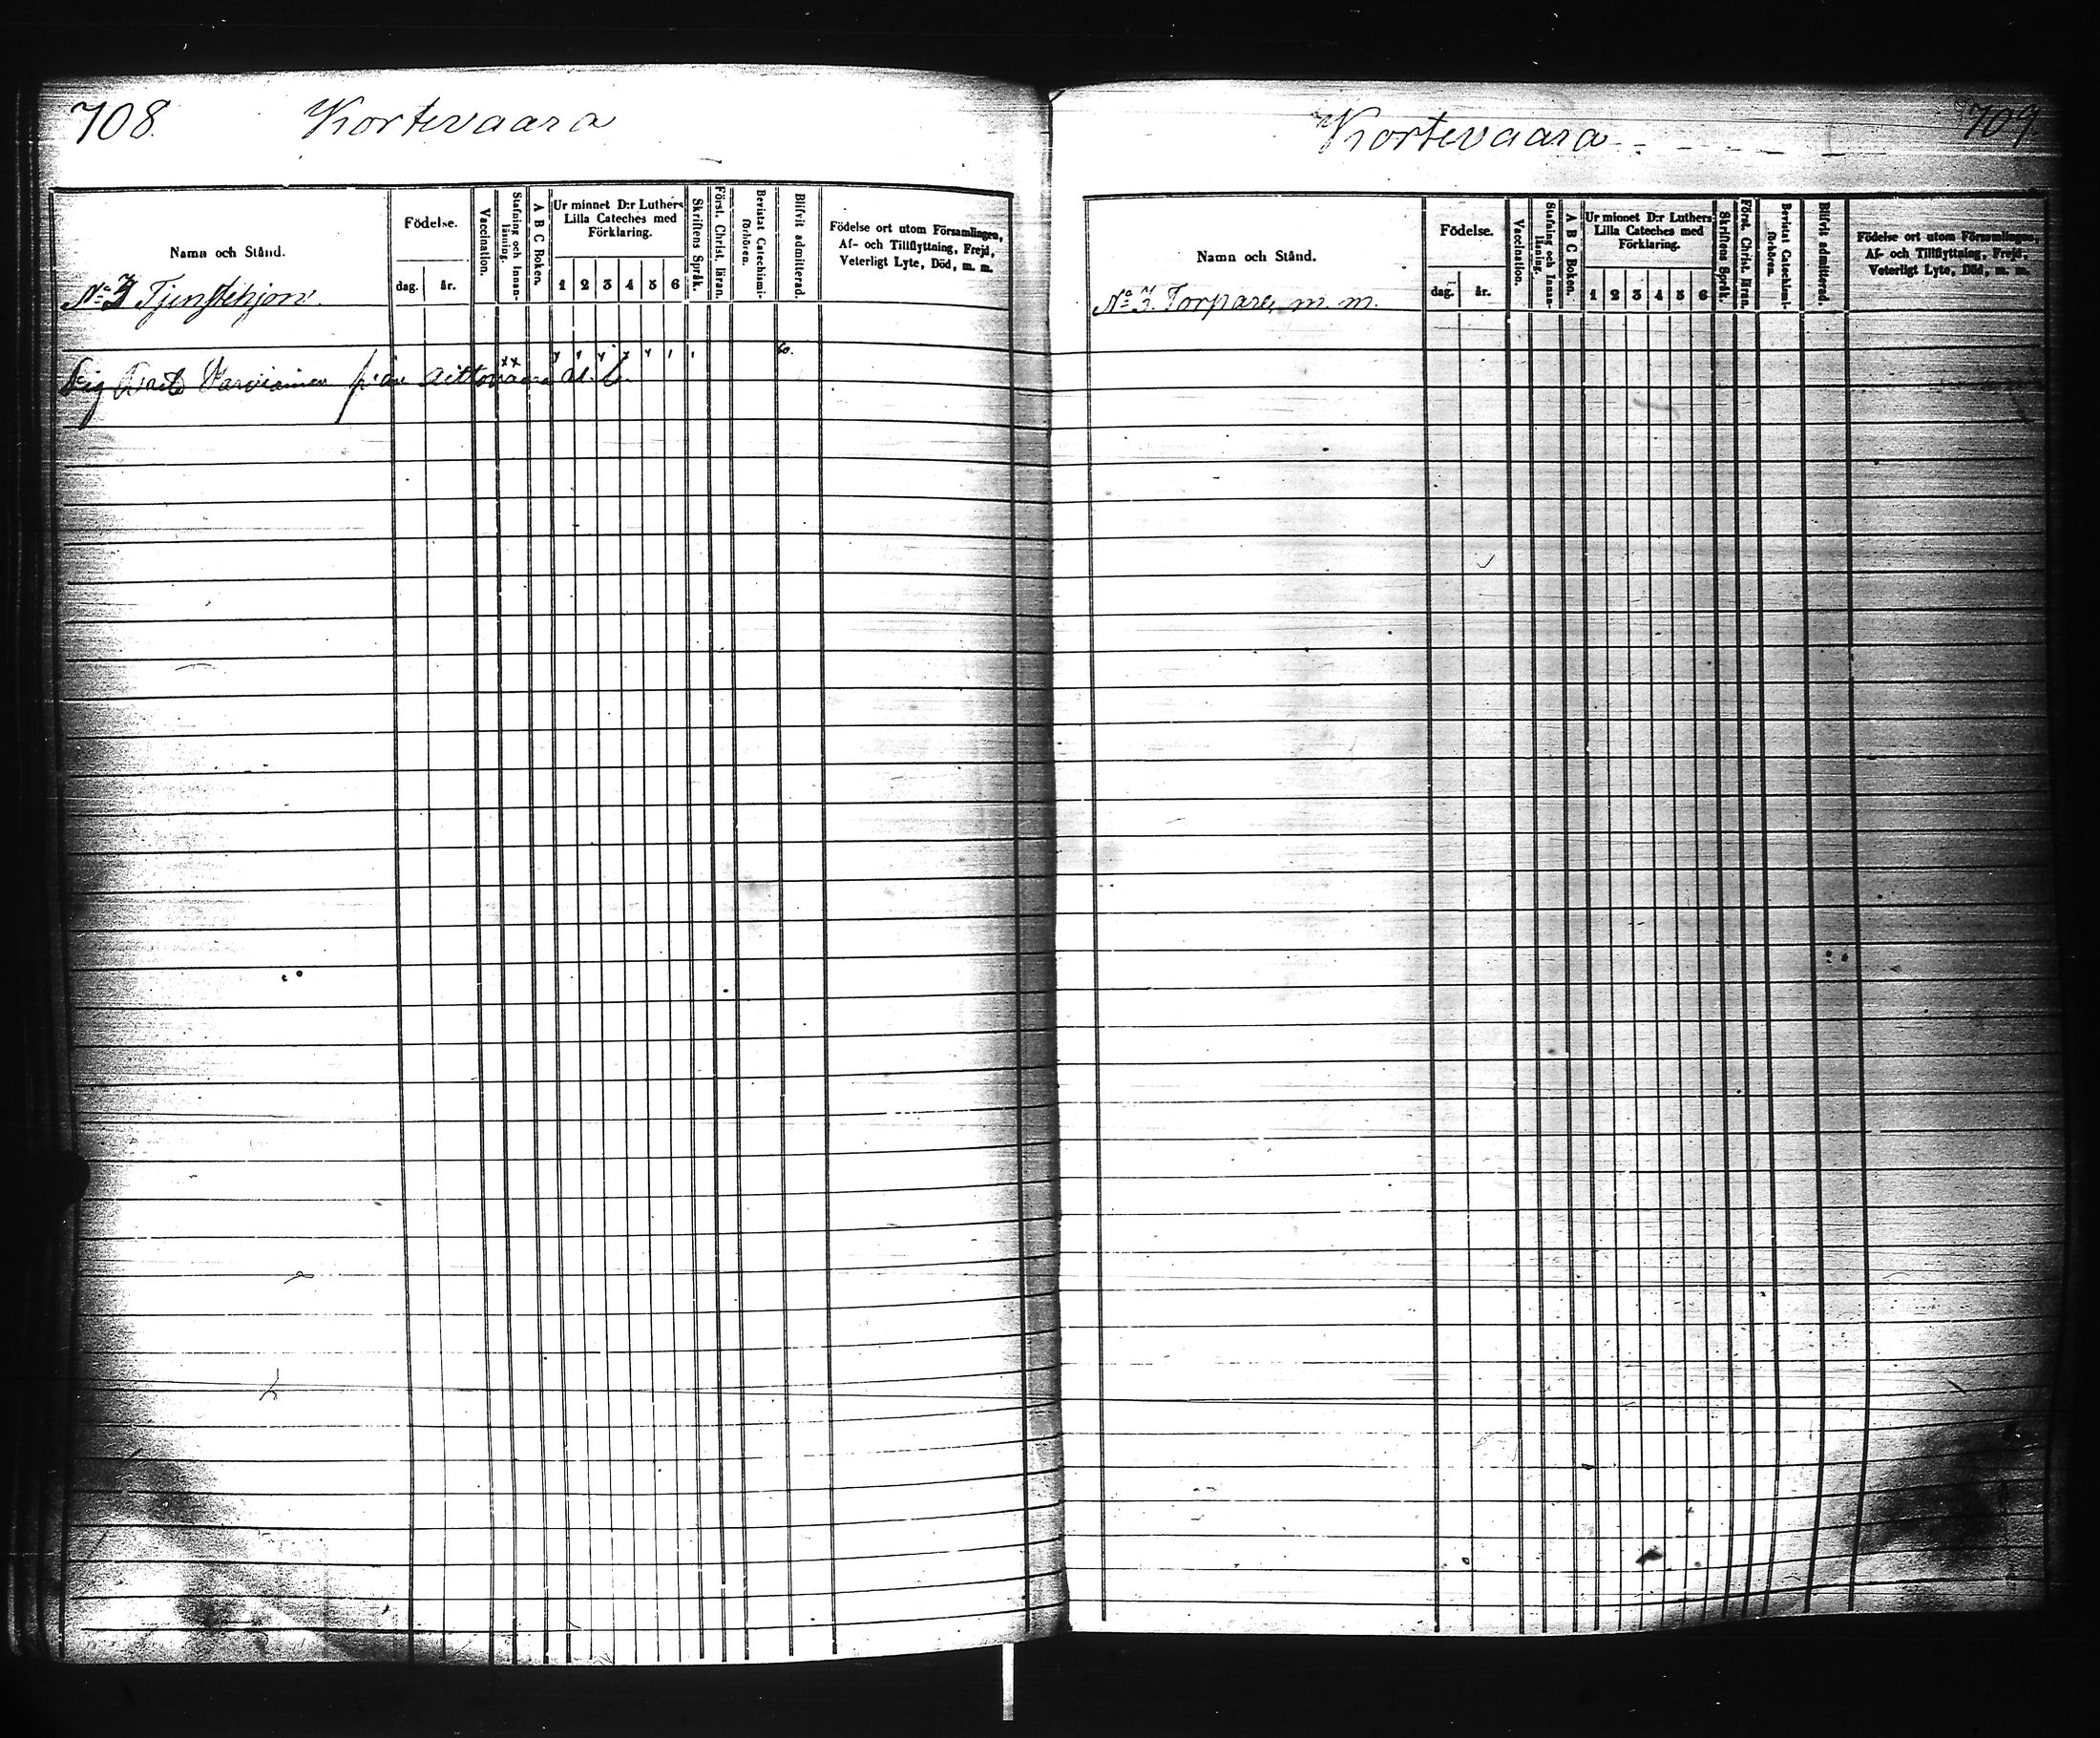 708. Kortevaara
Namn och Stånd.
Födelse.
dag. år.
Vaccination.
Stafning och Innan-
läsning.
A B C Boken.
Ur minnet D:r Luthers
Lilla Cateches med
Förklaring.
1 2 3 4 5 6
Skriftens Språk.
Först. Christ. läran.
Bevistat Catechismi-
förhören.
Blifvit admitterad.
Födelse ort utom Församlingen,
Af- och Tillflyttning, Frejd,
Veterligt Lyte, Död, m. m.
No 3 Tjenstehjon.
från Aittovaara
Kortevaara 709.
Namn och Stånd.
Födelse.
dag. år.
Vaccination.
Stafning och Innan-
läsning.
A B C Boken.
Ur minnet D:r Luthers
Lilla Cateches med
Förklaring.
1 2 3 4 5 6
Skriftens Språk.
Först. Christ. läran.
Bevistat Catechismi-
förhören.
Blifvit admitterad.
Födelse ort utom Församlingen,
Af- och Tillflyttning, Frejd,
Veterligt Lyte, Död, m. m.
No 3. Torpare, m. m.